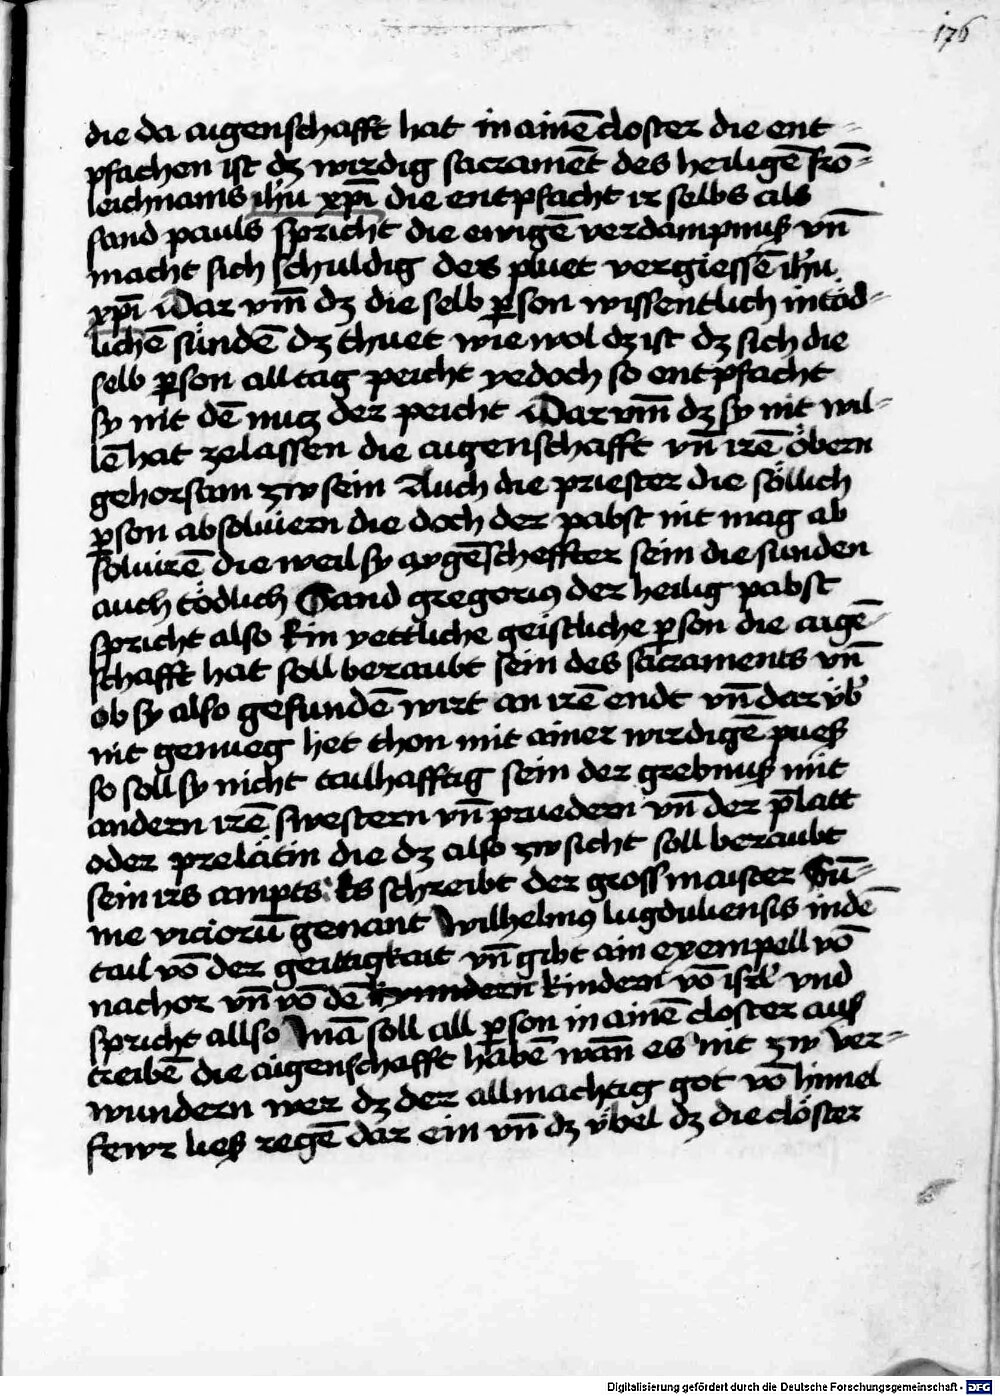 176
die da aigenschafft hat in ainē closter die ent-
pfachen ist dz wirdig sacramēt des heiligē frō-
leichnams ihū xp̄i die entpfacht ir selbs als
sand pauls spricht die ewigē verdampnuß vn̄
macht sich schuldig des pluet vergiessē ihū
xp̄i Dar vm̄ dz die selb p̱son wissentlich in töd-
lichē sündē dz thuet wie wol dz ist dz sich die
selb p̱son all tag peicht yedoch so entpfacht
sy nit dē nutz der peicht Dar vm̄ dz sy nit wil-
lē hat zelassen die aigenschafft vn̄ irē öbern
gehorsam zw sein Auch die priester die söllich
p̱son absoluiern die doch der pabst nit mag ab
soluirē die weil sy aygēscheffter sein die sunden
auch tödlich Sand gregori9 der heilig pabst
spricht also Ein yettliche geistliche p̱son die aigē-
schafft hat soll beraubt sein des sacraments vn̄
ob sy also gefundē wirt an irē endt vn̄ dar üb'
nit genueg het thon mit ainer wirdigē pueß
so soll sy nicht tailhafftig sein der grebnuß mit
andern irē swestern vn̄ pruedern vn̄ der p̄latt
oder prelätin die dz also zw sicht soll beraubt
sein irs ampts Es schreibt der gross maister Sū-
me viciorū genant Wilhelm9 lugduliensis in dē
tail vō der geittigkait vn̄ gibt ain exempell vō
nachor vn̄ vō dē kindern vō isrl' vnd
spricht allso Mā soll all p̱son in ainē closter auß
treibē die aigenschafft habē wān es nit zw ver-
wundern wer dz der allmachtig got vō himel
fewr ließ regē dar ein vn̄ dz übel dz die clöster
Digitalisierung gefördert durch die Deutsche Forschungsgemeinschaft - DFG